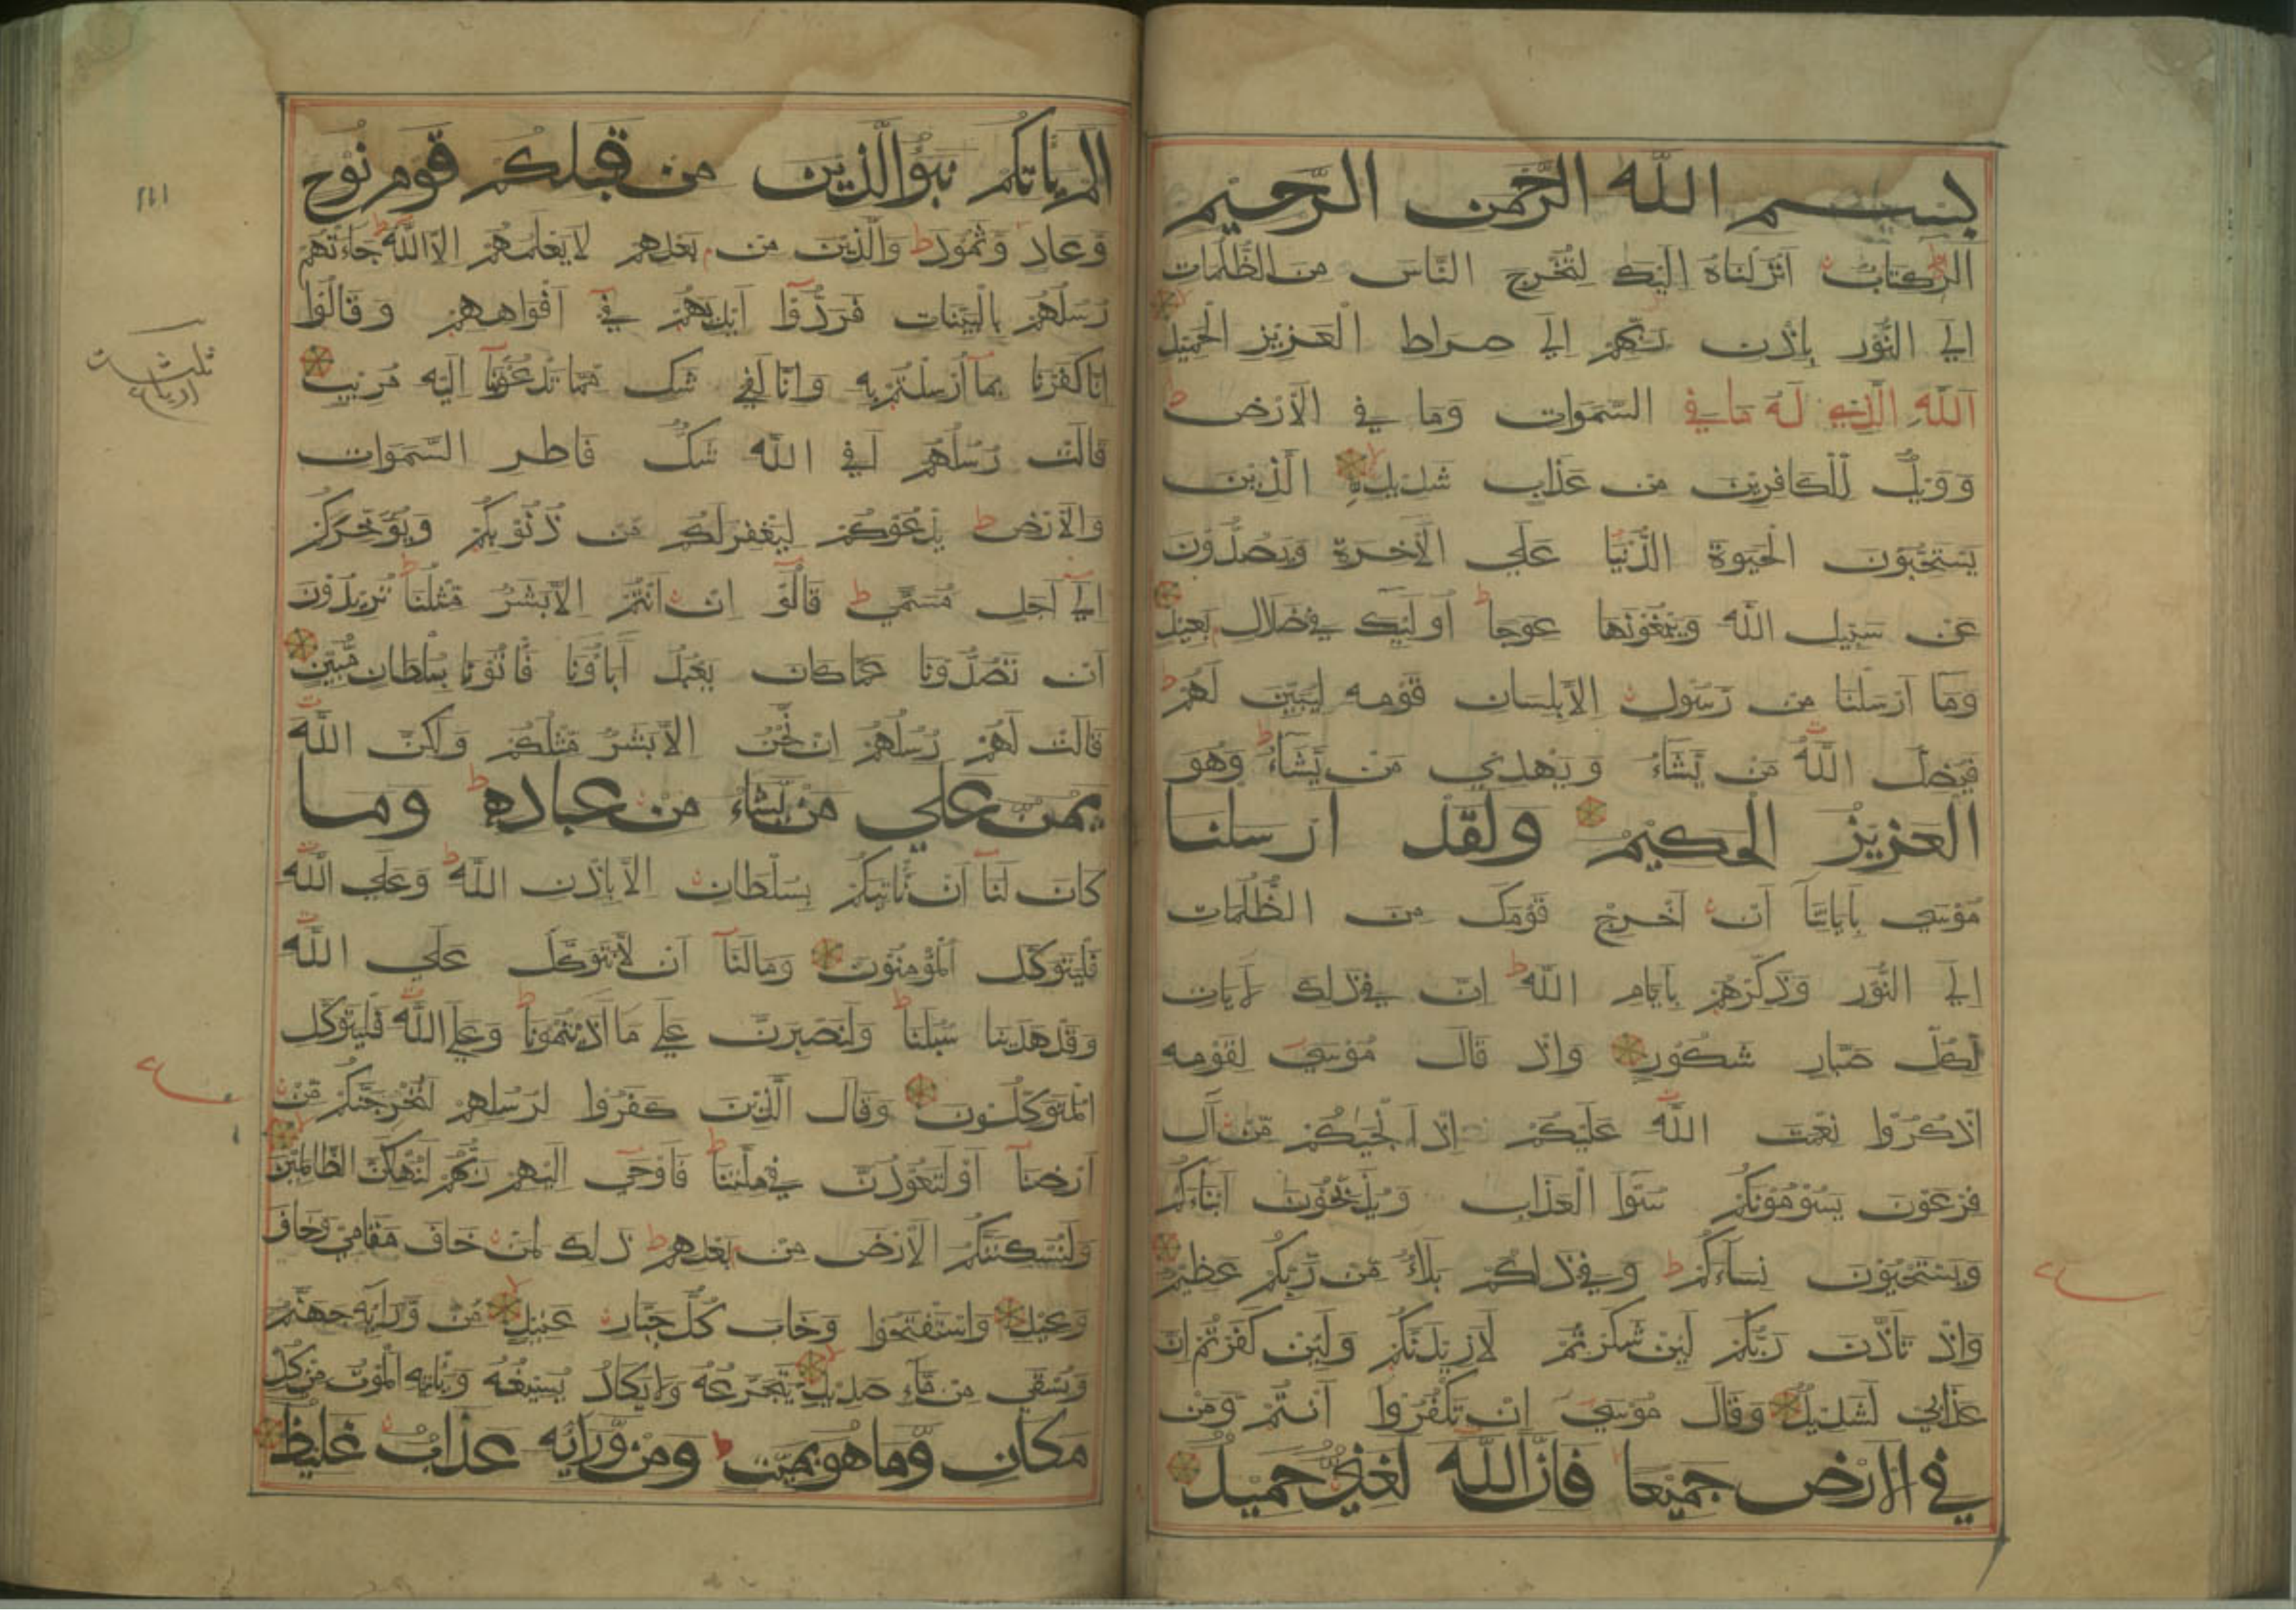 بسم الله الرحمن الرحيم
الر كتاب انزلناه اليك لتخرج الناس من الظلمات
الي النور باذن ربهم الي صراط العزيز الحميد
الله الذي له ما في السموات وما في الارض
وويل للكافرين من عذاب شديد الذين
يستحبون الحيوة الدنيا علي الاخرة ويصدون
عن سبيل الله ويبغونها عوجا اولئك في ضلال بعيد
وما ارسلنا من رسول الا بلسان قومه ليبين لهم
فيضل الله من يشاء ويهدي من يشاء وهو
العزيز الحكيم ولقد ارسلنا
موسي باياتنا ان اخرج قومك من الظلمات
الي النور وذكرهم بايام الله ان في ذلك لايات
لكل صبار شكور واذ قال موسي لقومه
اذكروا نعمت الله عليكم اذ انجيكم من آل
فرعون يسومونكم سوا العذاب ويذبحون ابناءكم
ويستحيون نساءكم وفي ذلكم بلاء من ربكم عظيم
واذ تاذن ربكم لئن شكرتم لازيدنكم ولئن كفرتم ان
عذابي لشديد وقال موسي ان تكفروا انتم ومن
في الارض جميعا فان الله لغني حميد
الم ياتكم نبؤ الذين من قبلكم قوم نوح
وعاد وثمود والذين من بعدهم لا يعلمهم الا الله جاءتهم
رسلهم بالبينات فردوا ايديهم في افواههم وقالوا
انا كفرنا بما ارسلتم به وانا لفي شك مما تدعوننا اليه مريب
قالت رسلهم افي الله شك فاطر السموات
والارض يدعوكم ليغفر لكم من ذنوبكم ويؤخركم
الي اجل مسمي قالوا ان انتم الا بشر مثلنا تريدون
ان تصدونا عما كان يعبد آباؤنا فأتونا بسلطان مبين
قالت لهم رسلهم ان نحن الا بشر مثلكم ولكن الله
يمن علي من يشاء من عباده وما
كان لنا ان ناتيكم بسلطان الا باذن الله وعلي الله
فليتوكل المؤمنون وما لنا ان لا نتوكل علي الله
وقد هدينا سبلنا ولنصبرن علي ما آذيتمونا وعلي الله فليتوكل
المتوكلون وقال الذين كفروا لرسلهم لنخرجنكم من
ارضنا او لتعودن في ملتنا فاوحي اليهم ربهم لنهلكن الظالمين
ولنسكننكم الارض من بعدهم ذلك لمن خاف مقامي وخاف
وعيد واستفتحوا وخاب كل جبار عنيد من ورائه جهنم
ويسقي من ماء صديد يتجرعه ولا يكاد يسيغه وياتيه الموت من كل
مكان وما هو بميت ومن ورائه عذاب غليظ
ااا
ثلثة
ارباع